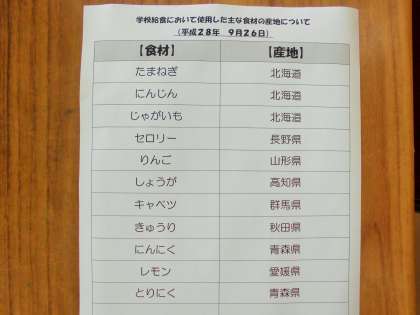 学校給食において使用した主な食材の産地について
(平成28年 9月26日)
【食材】 【産地】
たまねぎ 北海道
にんじん 北海道
じゃがいも 北海道
セロリー 長野県
りんご 山形県
しょうが 高知県
キャベツ 群馬県
きゅうり 秋田県
にんにく 青森県
レモン 愛媛県
とりにく 青森県